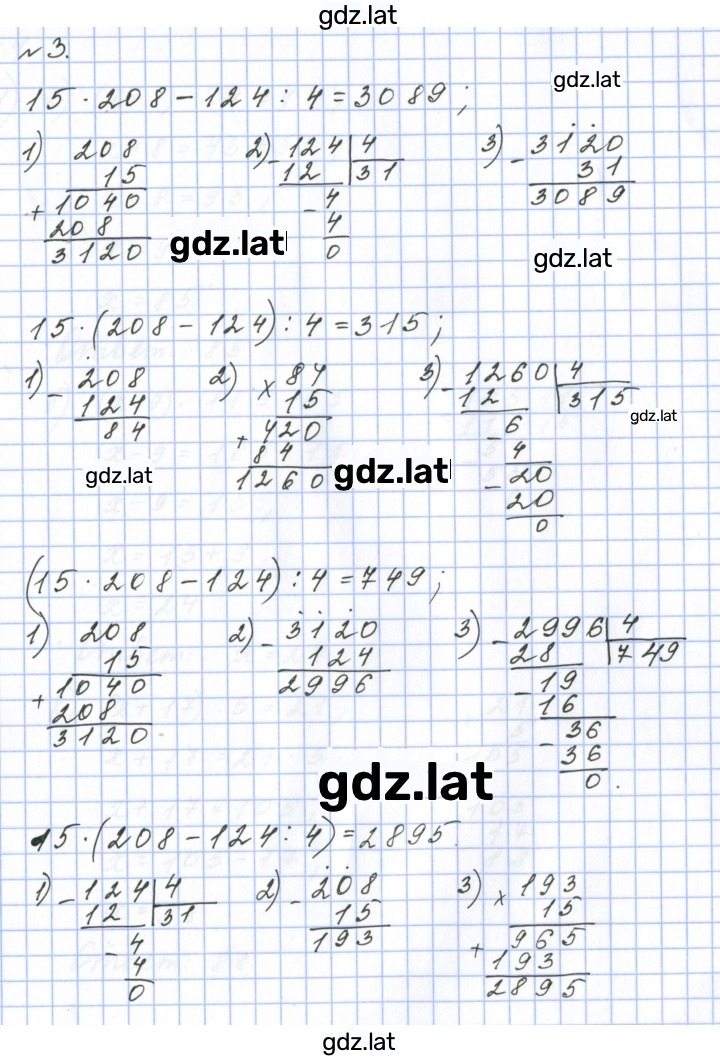 gdz.lat
№3.
gdz.lat
15 · 208 - 124 : 4 = 3089;
1) 208
15
+ 1040
208
3120
2) - 124 | 4
12 | 31
- 4
4
0
3) - 3120
31
3089
gdz.lat
gdz.lat
15 · (208 - 124) : 4 = 315;
1) - 208
124
84
2) × 84
15
+ 420
84
1260
3) - 1260 | 4
12 | 315
- 6
4
- 20
20
0
gdz.lat
gdz.lat
gdz.lat
(15 · 208 - 124) : 4 = 749;
1) 208
15
+ 1040
208
3120
2) - 3120
124
2996
3) - 2996 | 4
28 | 749
- 19
16
- 36
36
0.
gdz.lat
15 · (208 - 124 : 4) = 2895.
1) - 124 | 4
12 | 31
- 4
4
0
2) - 208
15
193
3) × 193
15
+ 965
193
2895
gdz.lat